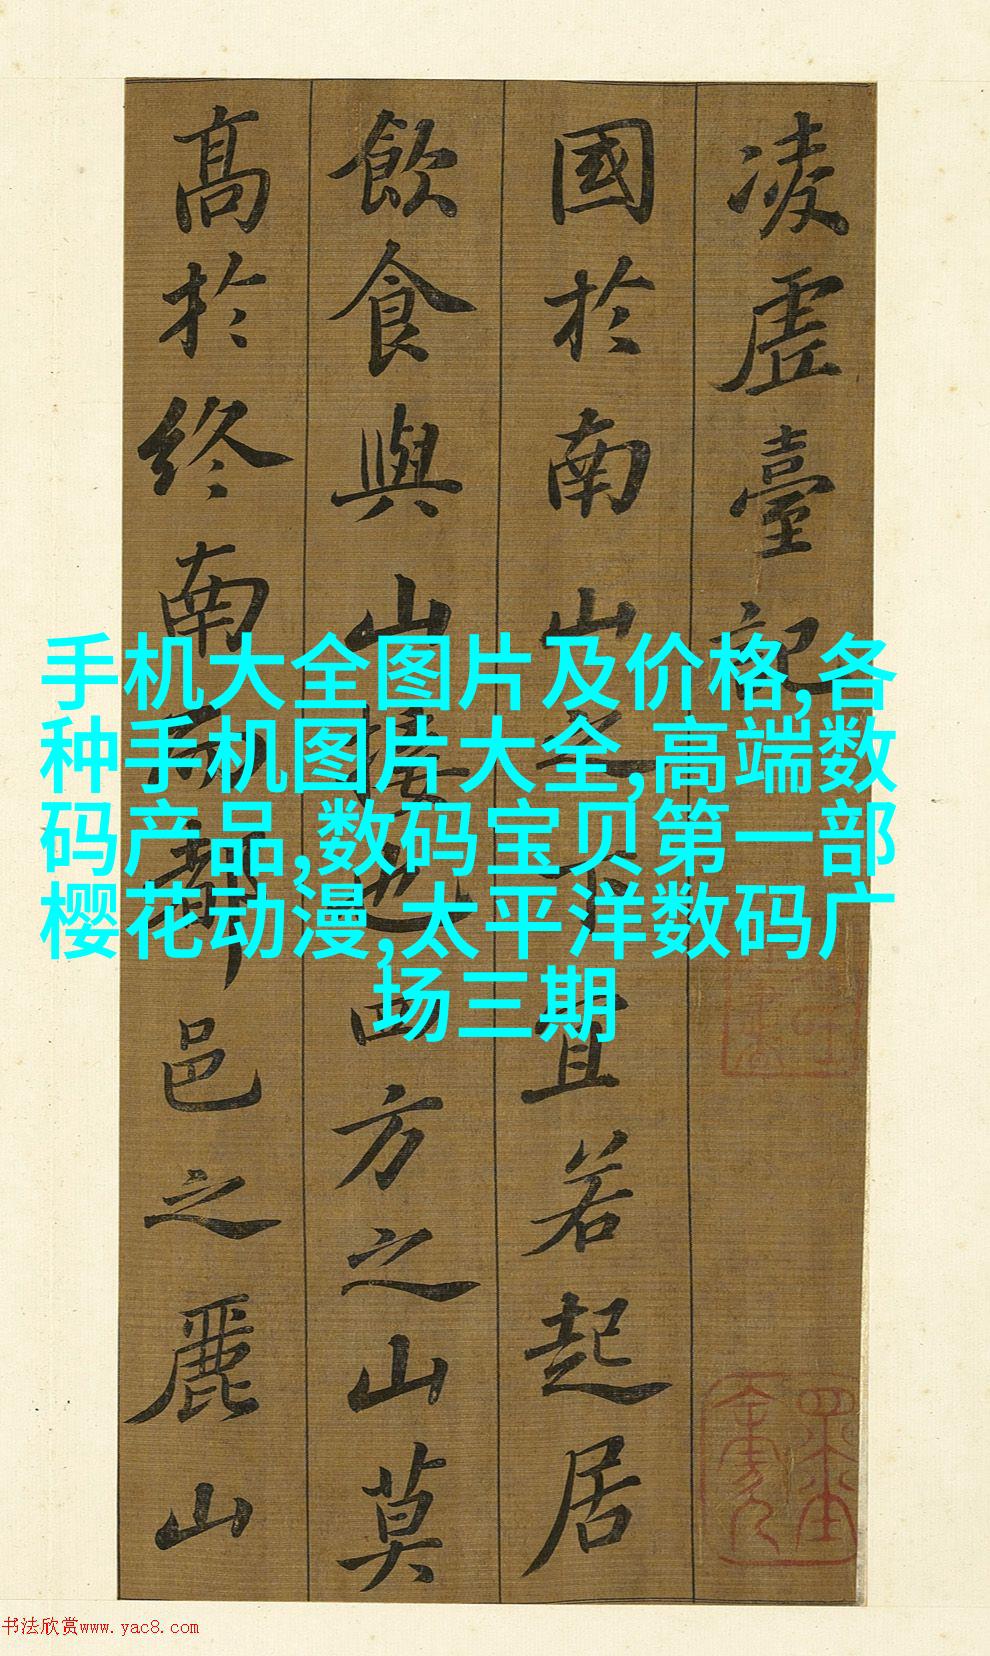 凌虛臺記
國於南山之下宜若起居
飲食與山接也四方之山莫
髙於終南而都邑之麗山
手机大全图片及价格,各
种手机图片大全,高端数
码产品,数码宝贝第一部
樱花动漫,太平洋数码广
场三期
书法欣赏www.yac8.com